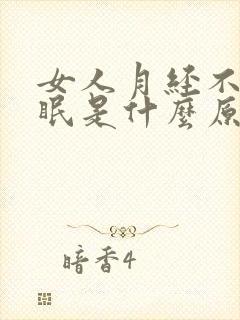 女人月经不
眠是什麼原
暗香4